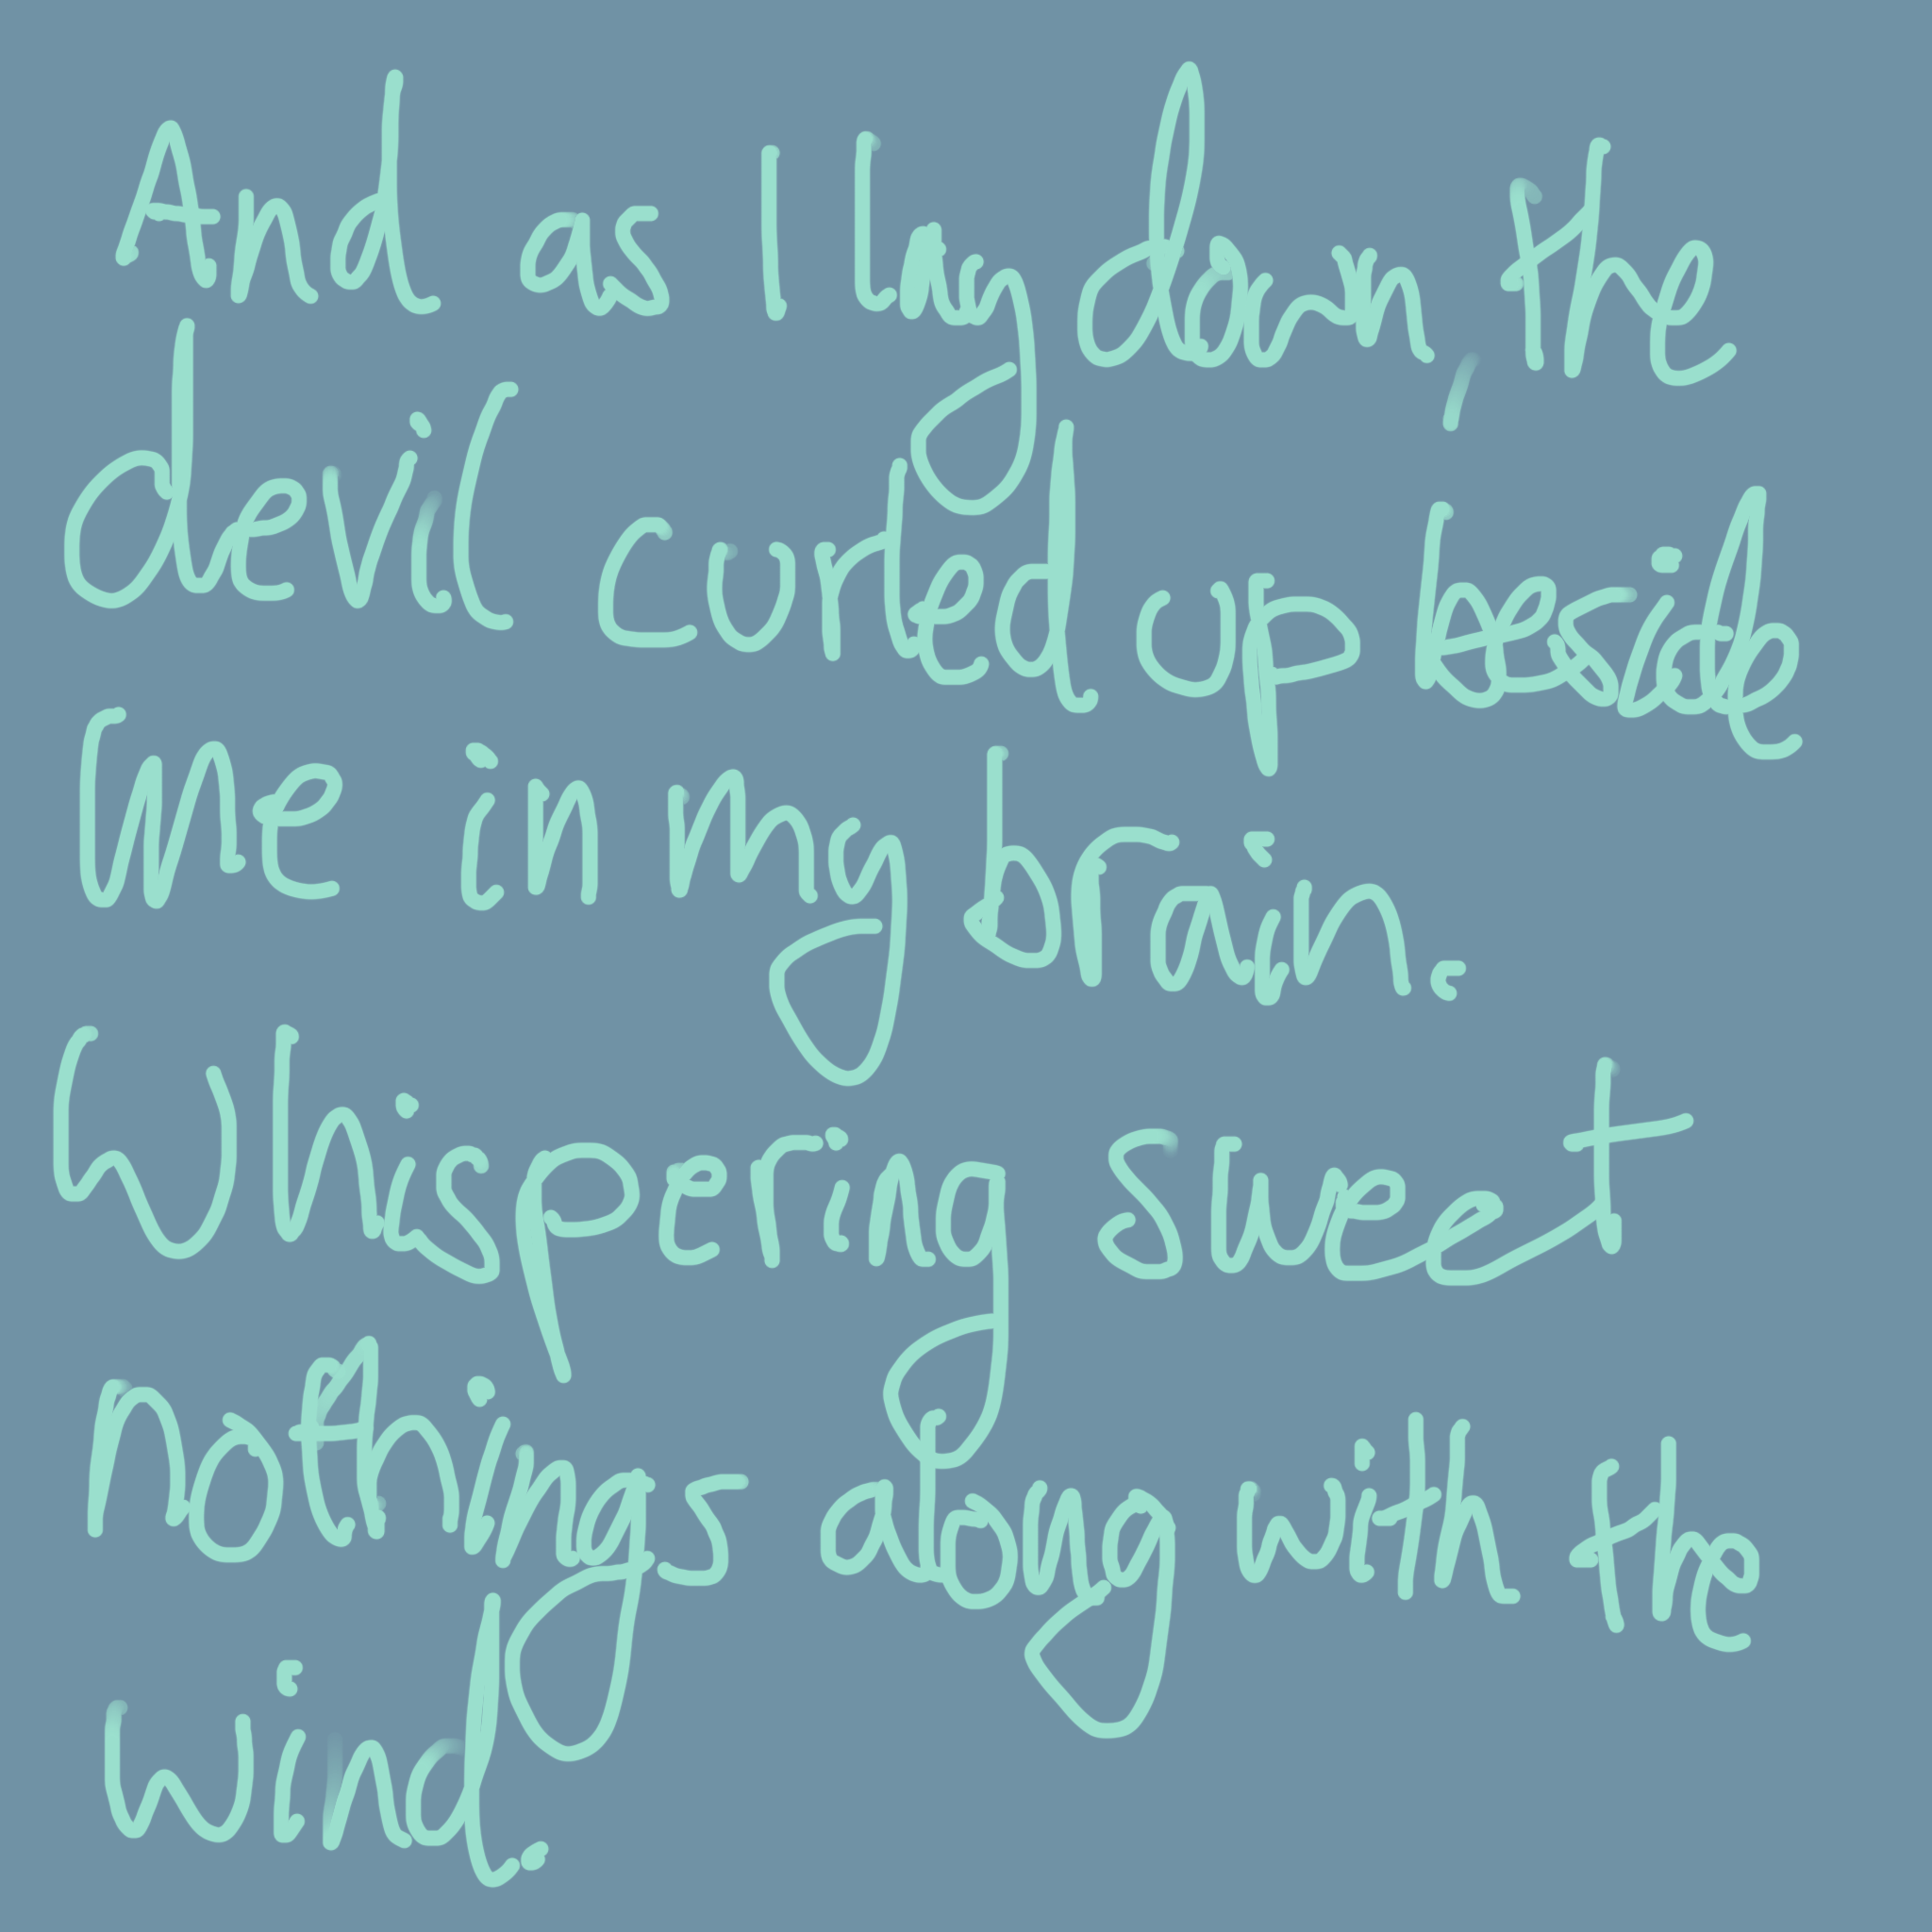 And as I lay down, the
devil curled up beside
me in my brain.
Whispering sweet
nothings along with the
wind.